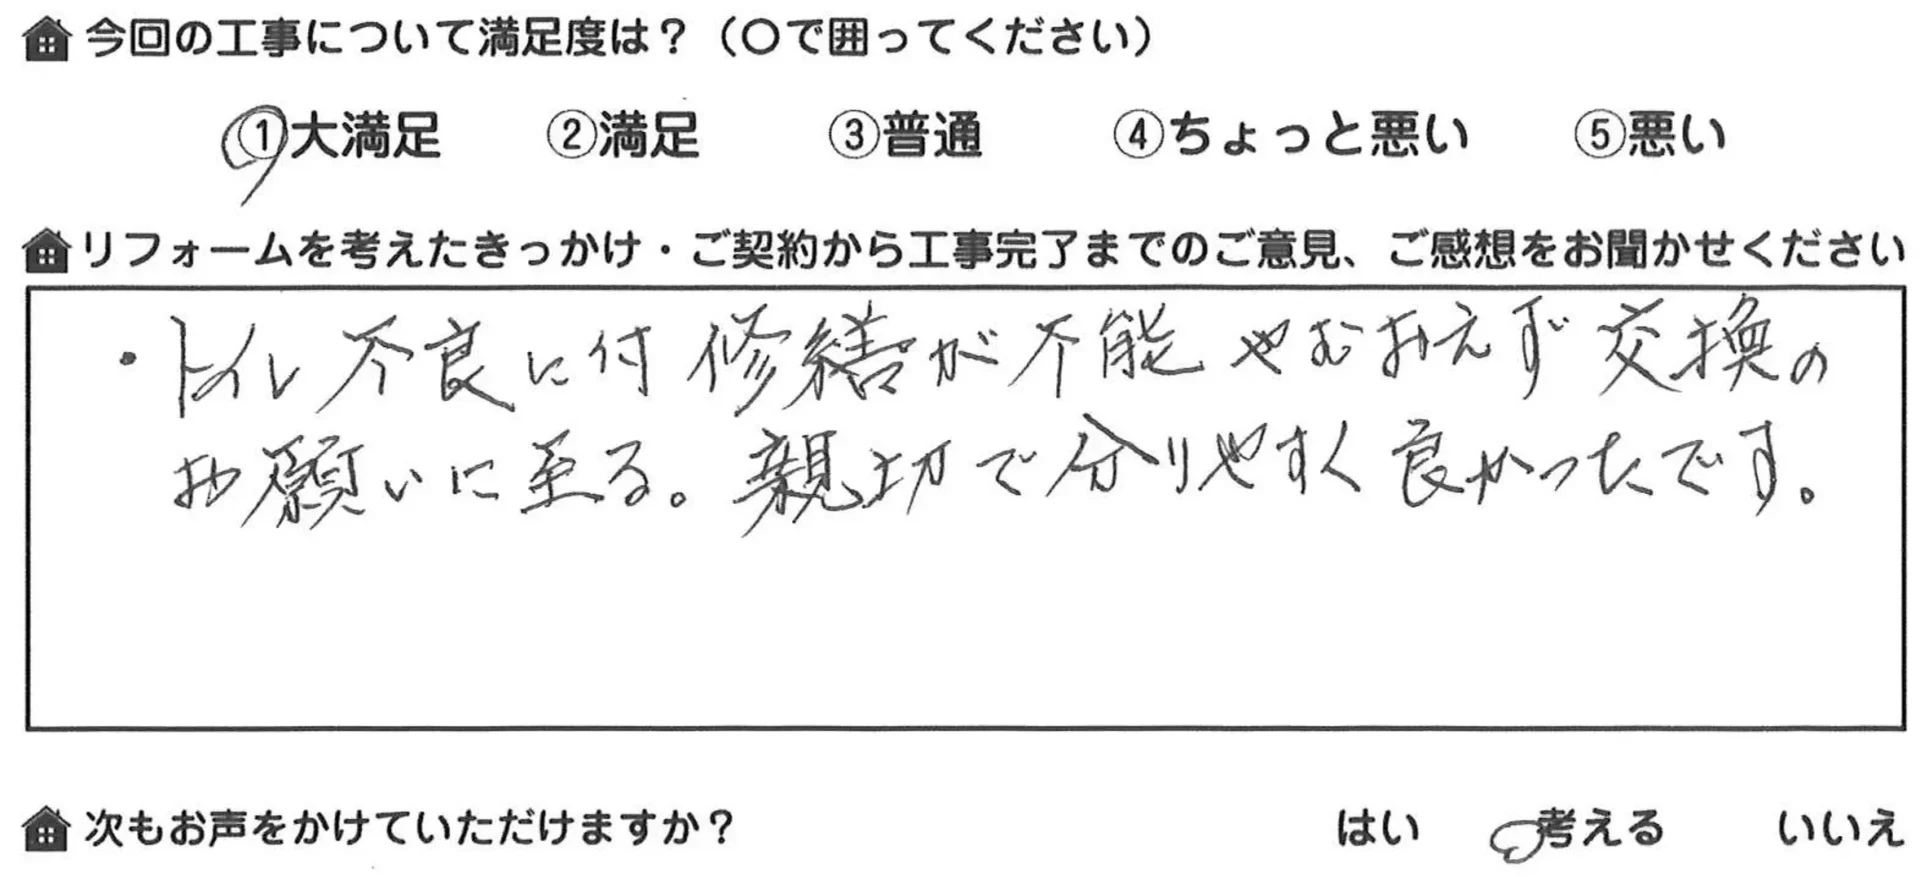 今回の工事について満足度は？（〇で囲ってください）
①大満足 ②満足 ③普通 ④ちょっと悪い ⑤悪い
リフォームを考えたきっかけ・ご契約から工事完了までのご意見、ご感想をお聞かせください
・トイレ不良に付 修繕が不能 やむおえず 交換の
お願いに至る。親切で分りやすく良かったです。
次もお声をかけていただけますか？ はい 考える いいえ